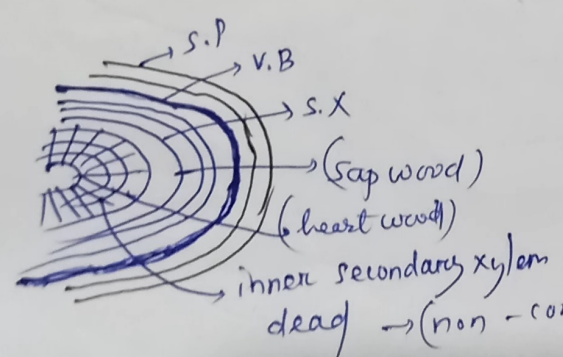 S.P
V.B
S.X
(Sap wood)
(heart wood)
inner secondary xylem
dead → (non -